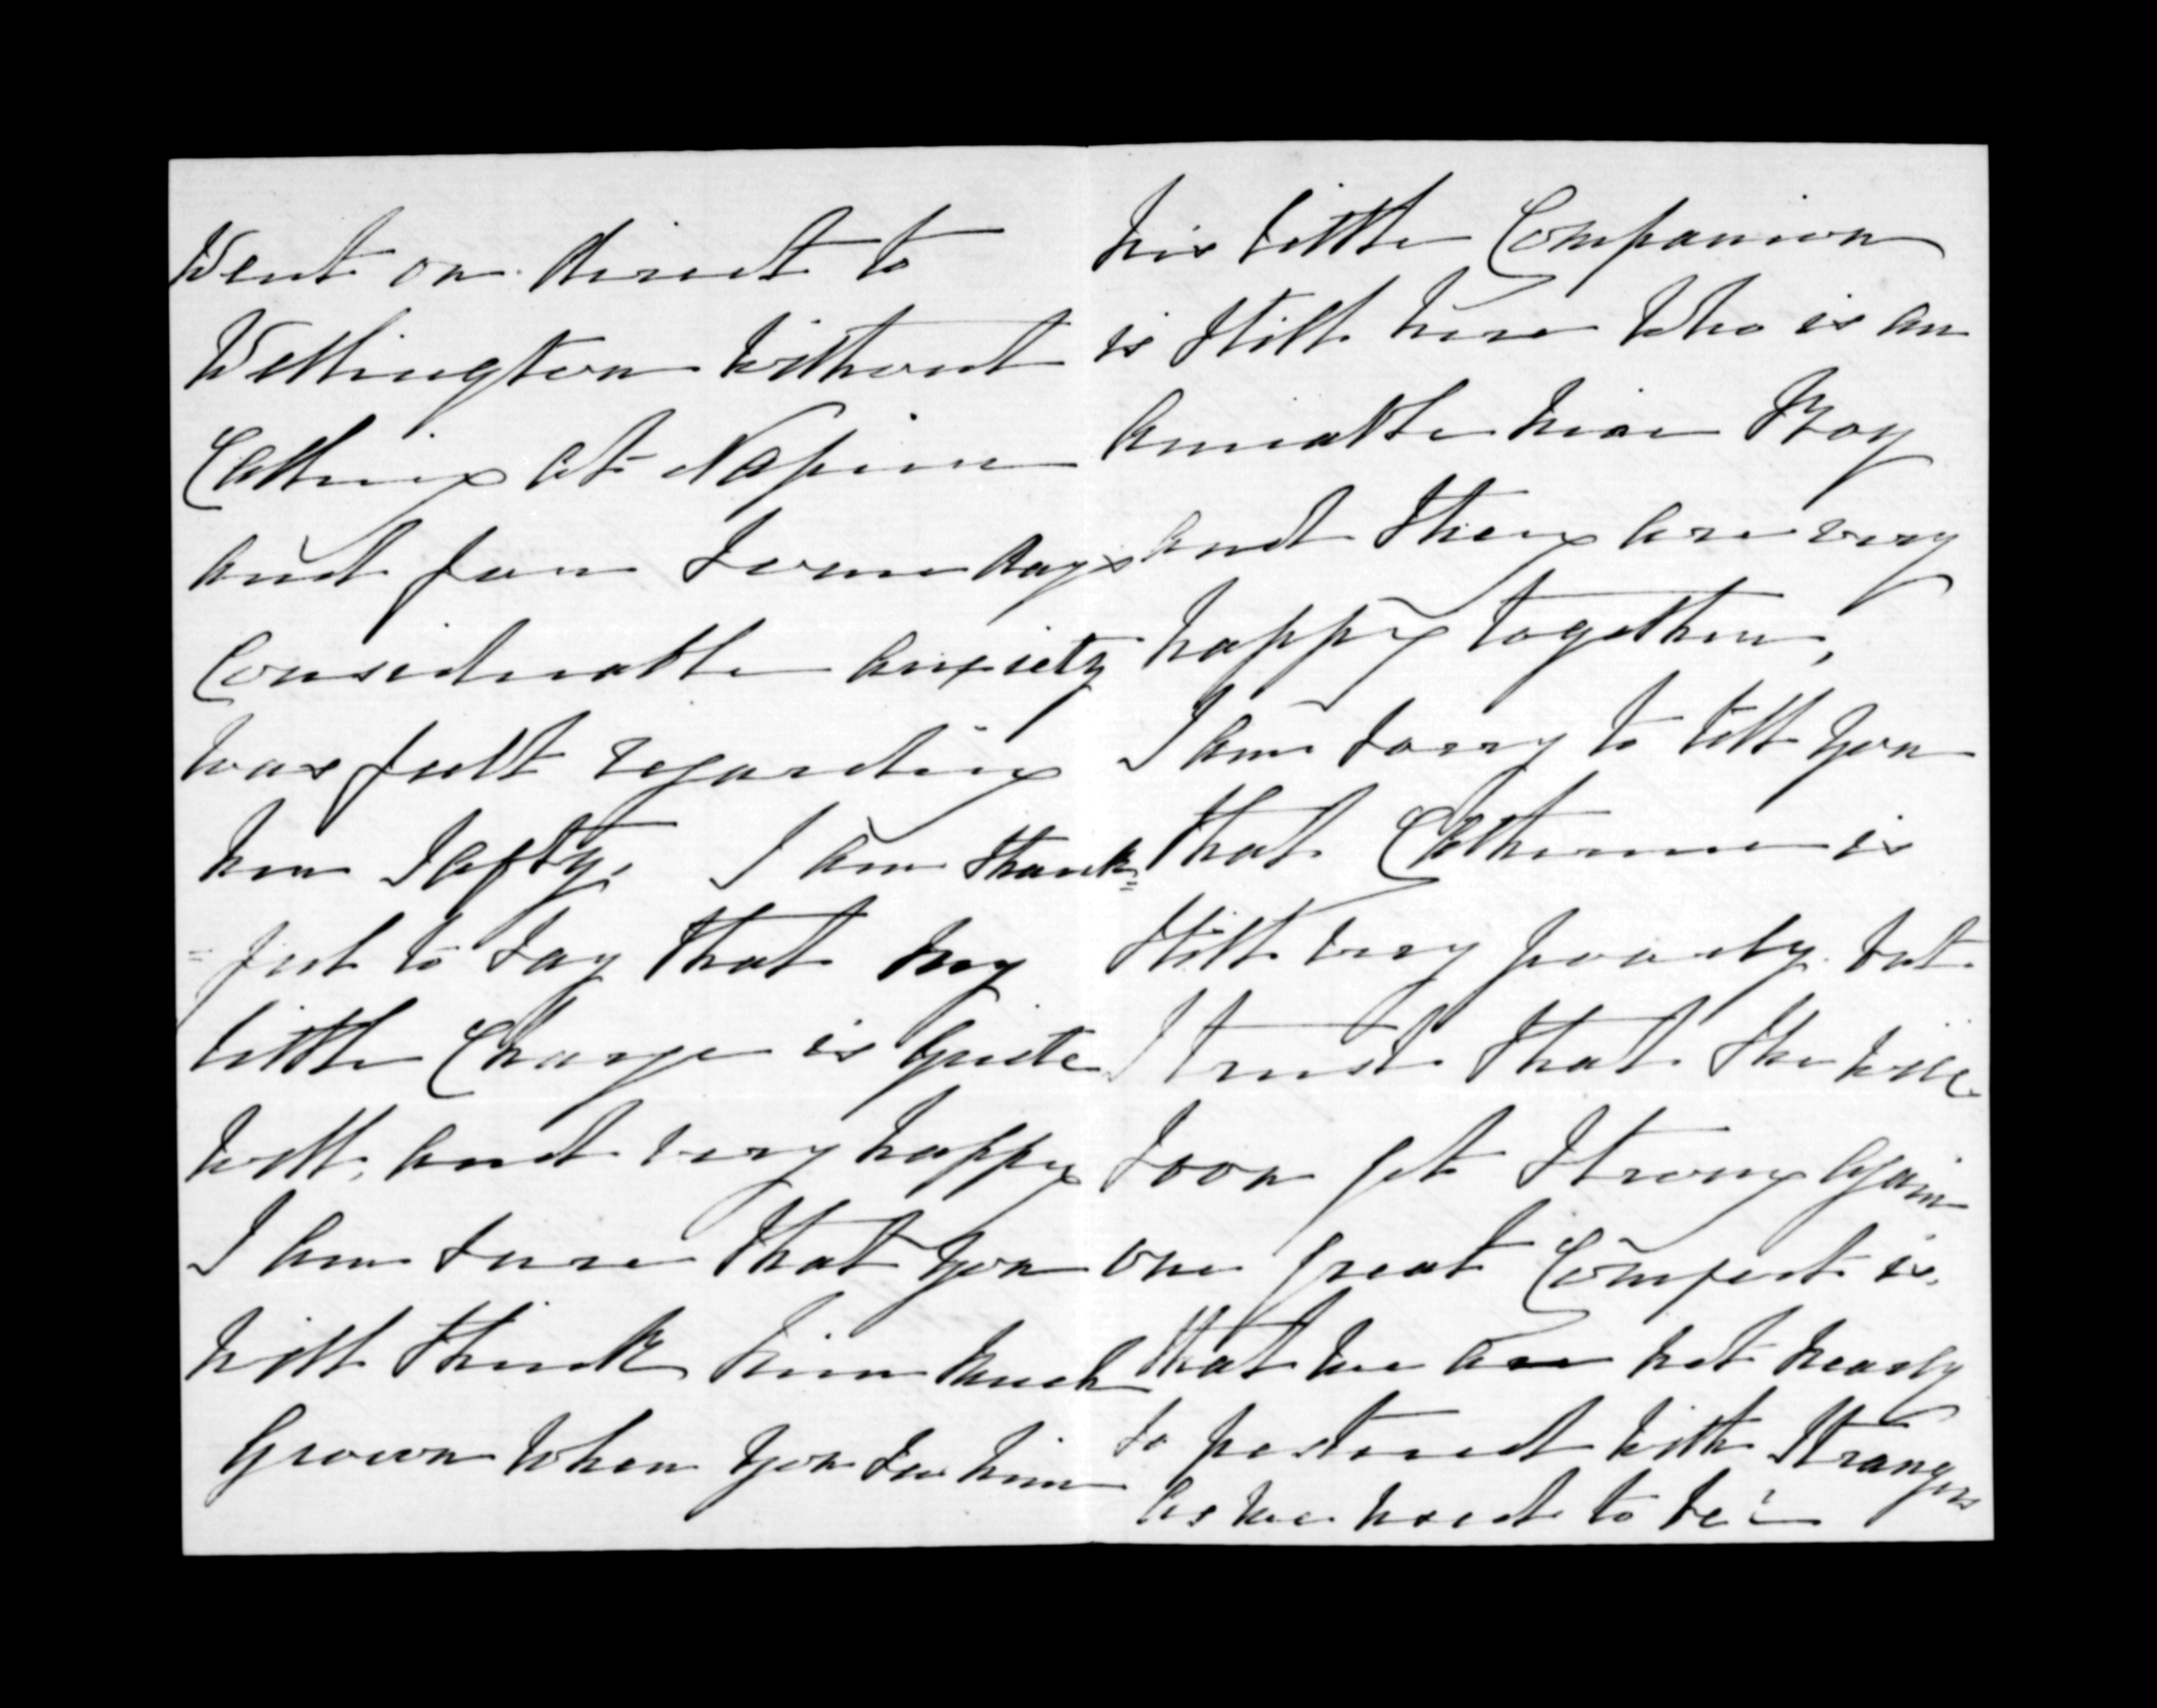 Went on direct to
Wellington without
Calling at Napier
and for Some days
Considerable anxiety
was felt regarding
her Safty. I am thank=
=full to Say that my
little Charge is Quite
well, and very happy
I am Sure that you
will think him much
Grown when you See him
his little Companion
is Still here who is an
amiable nice Boy
and they are very
happy together,
I am Sorry to tell you
that Catherine is
Still very poorly. but
I trust that She will
Soon get Strong again
one great Comfort is,
that we are not nearly
So pestered with Strangers
as we used to be!